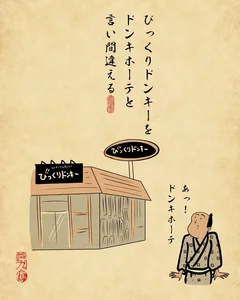 びっくりドンキーを
ドンキホーテと
言い間違える
びっくりドンキー
びっくりドンキー
あっ！
ドンキホーテ